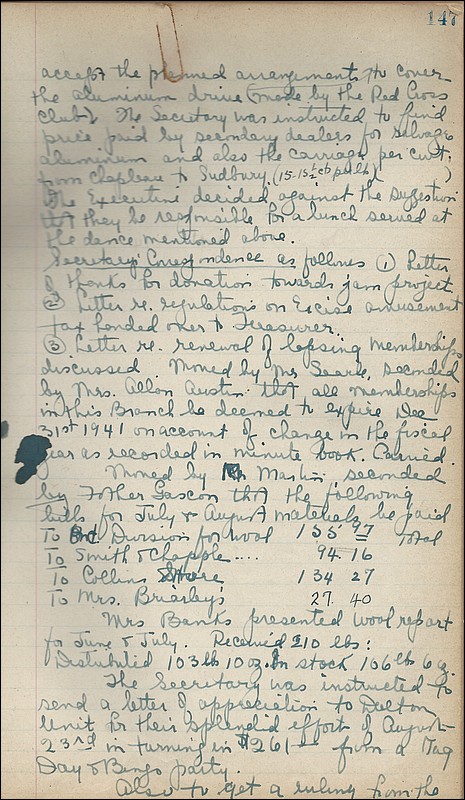 147
accept the planned arrangements to cover
the aluminum drive (made by the Red Cross
Club). The Secretary was instructed to find
price paid by secondary dealers for salvage
aluminum and also the carriage per cwt.
from Chapleau to Sudbury. (15-1st
The Executive decided against the sugestion
that they be responsible for a lunch served at
the dance mentioned above.
Secretary's Correspondence as follows (1) Letter
of thanks for donation towards jam project.
(2) Letter re. regulations on Excise amusement
tax handed over to Treasurer.
(3) Letter re. renewal of lapsing memberships
discussed. Moved by Mr Searle, seconded
by Mrs. Allon Austin that all memberships
in this Branch be deemed to expire Dec
31st 1941 on account of change in the fiscal
year as recorded in minute book. Carried.
Moved by Martin, seconded
by Father Gascon that the following
bills for July & August materials be paid
To Ont Division for wool 155 37 Total
To Smith & Chapple .... 94. 16
To Collins Store 134 27
To Mrs. Brierley's 27. 40
Mrs Banks presented wool report
for June & July. Received 210 lbs:
Distributed 103 lb 10 oz. In stock 106 lb 6 oz.
The Secretary was instructed to
send a letter of appreciation to Dalton
Unit for their splendid effort of August
23rd in turning in $261 from a Tag
Day & Bingo party.
Also to get a ruling from the